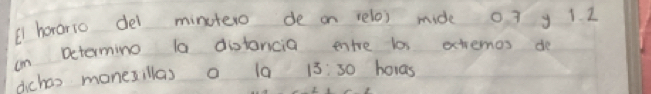 El horario del minutero de on reloj mide 0.7 y 1.2
cm Determino la distancia entre los extremos de
dichas manesillas a la 13:30 horas